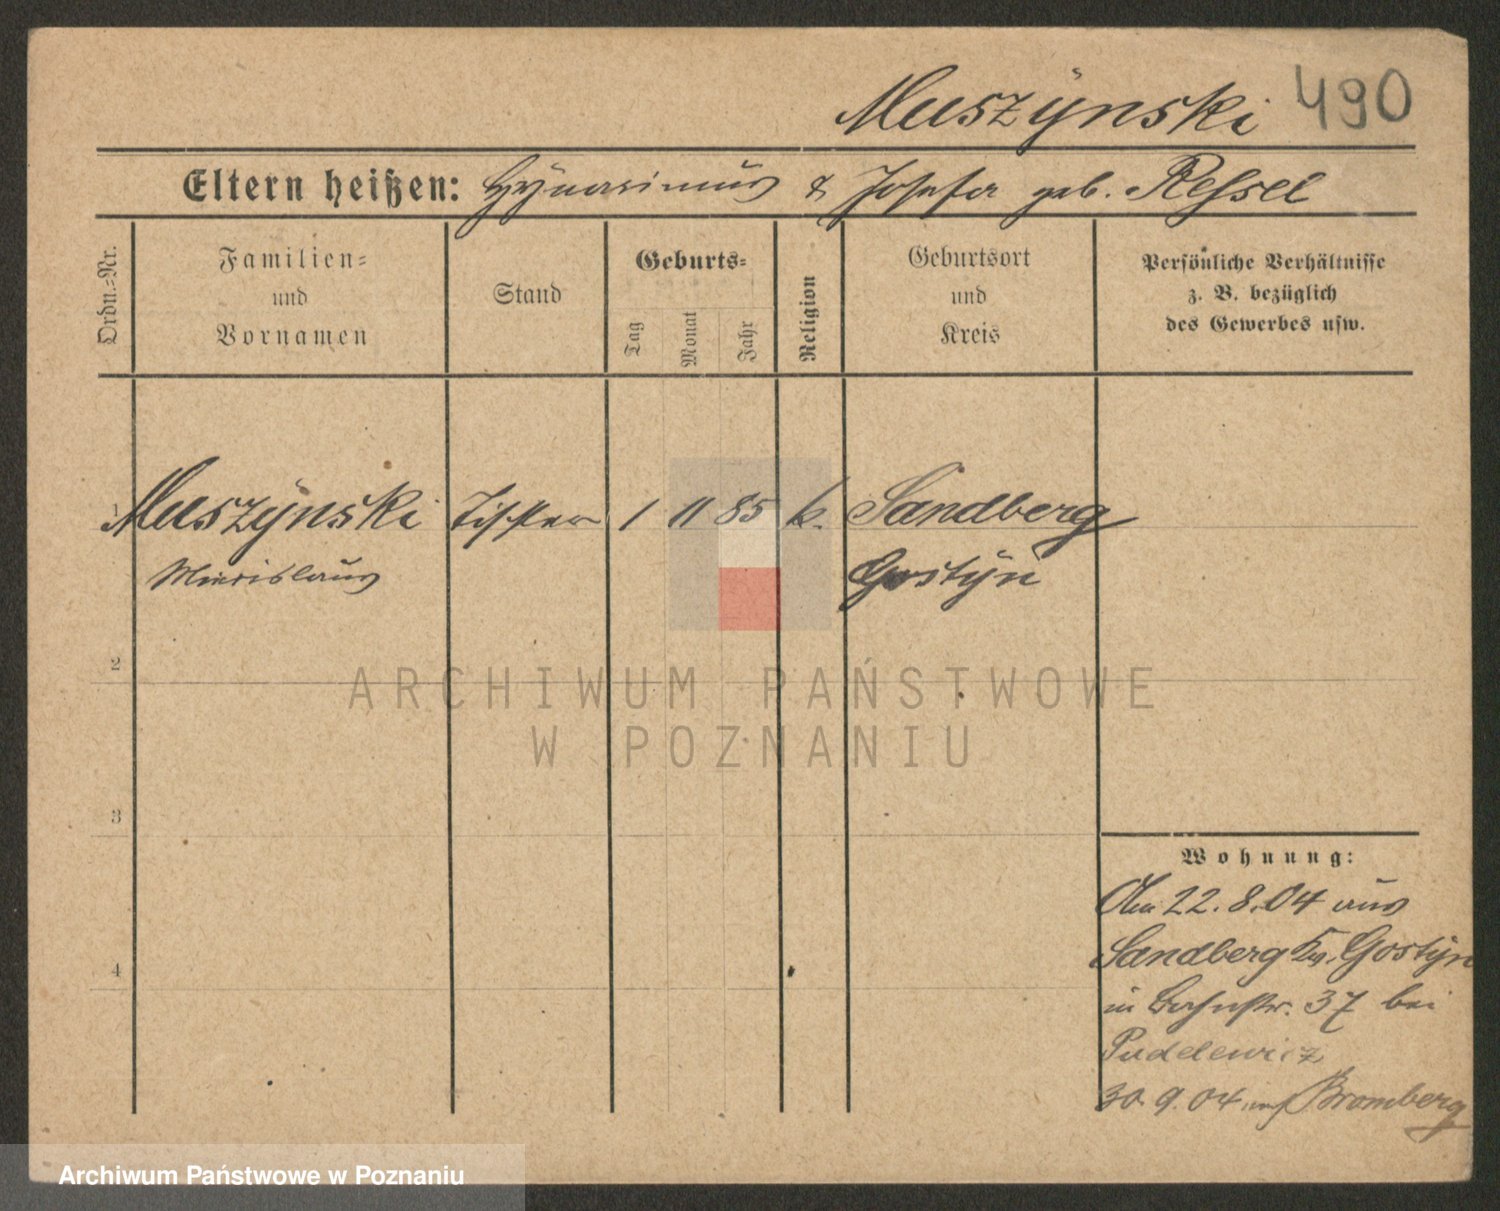 Muszÿnski 490
Eltern heißen: & Josefa geb. Ressel
Ordn.-Nr.
Familien-
und
Vornamen
Stand
Geburts-
Tag
Monat
Jahr
Religion
Geburtsort
und
Kreis
Persönliche Verhältnisse
z. B. bezüglich
des Gewerbes usw.
1 Muszÿnski Tischler 1 11 85 k. Sandberg
Miecislaus Gostÿn
2
ARCHIWUM PAŃSTWOWE
W POZNANIU
3
Wohnung:
Am 22.8.04 aus
Sandberg Kr. Gostÿn
4
in Bahnstr. 37 bei
Pudelewicz
30.9.04 Bromberg
Archiwum Państwowe w Poznaniu